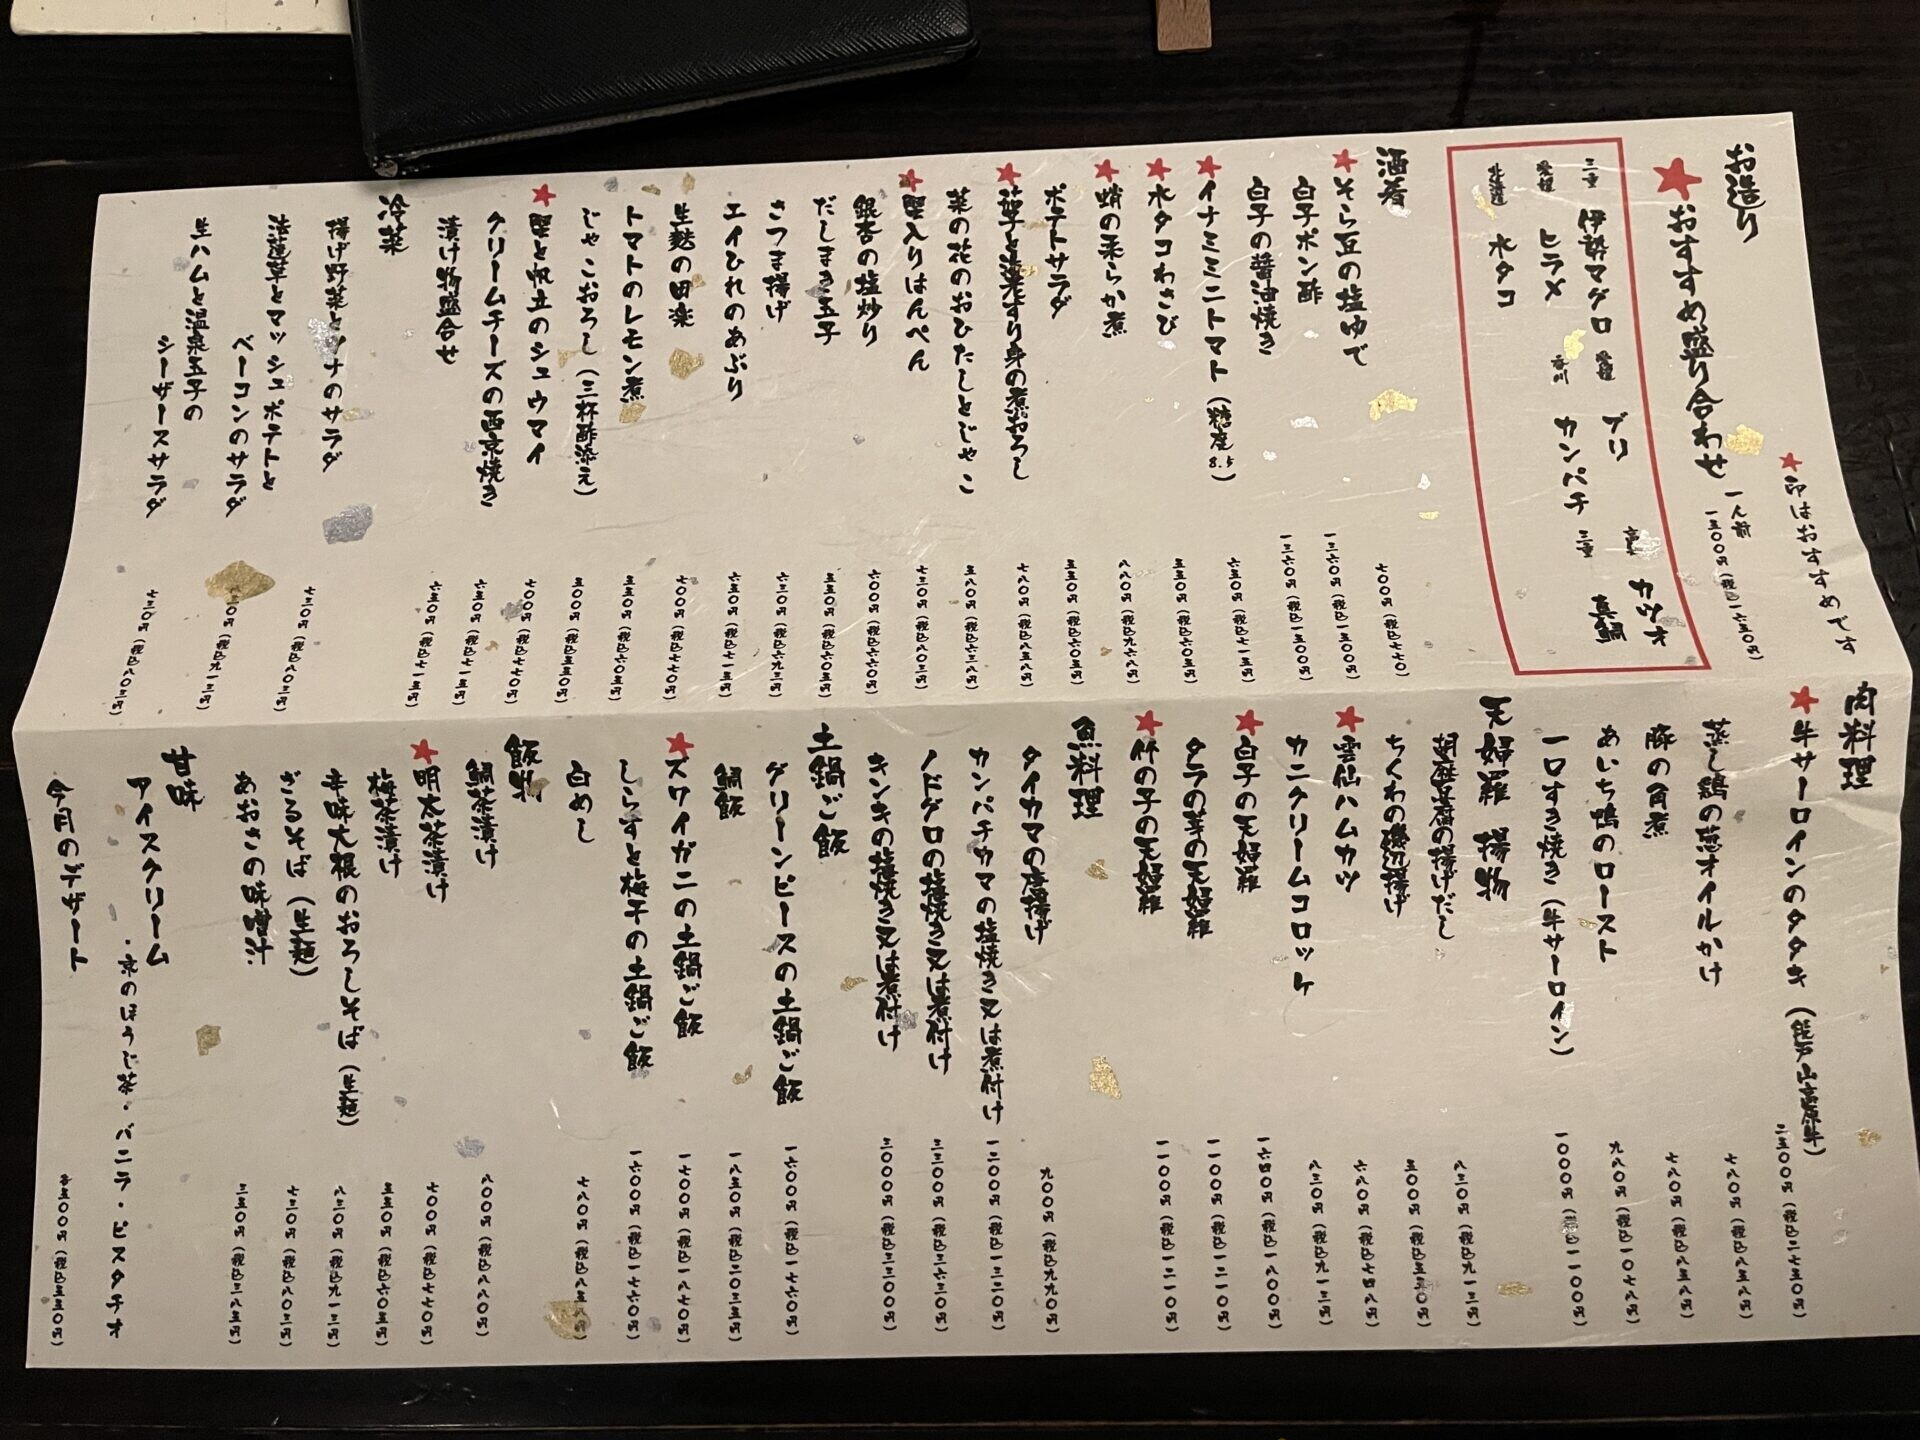 ★印はおすすめです
お造り
★おすすめ盛り合わせ 一人前 一五〇〇円（税込一六五〇円）
三重 伊勢マグロ 愛媛 ブリ カツオ
愛媛 ヒラメ 香川 カンパチ 三重 真鯛
北海道 水タコ
酒肴
★そら豆の塩ゆで 七〇〇円（税込七七〇）
白子ポン酢 一三六〇円（税込一五〇〇円）
白子の醤油焼き 一三六〇円（税込一五〇〇円）
★イナミミニトマト（糖度8.5） 六五〇円（税込七一五円）
★水タコわさび 五五〇円（税込六〇五円）
★蛸の柔らか煮 八八〇円（税込九六八円）
ポテトサラダ 五五〇円（税込六〇五円）
★すり身の煮おろし 七八〇円（税込八五八円）
菜の花のおひたしとじゃこ 五八〇円（税込六三八円）
★蟹入りはんぺん 七三〇円（税込八〇三円）
銀杏の塩炒り 六〇〇円（税込六六〇円）
だしまき玉子 五五〇円（税込六〇五円）
さつま揚げ 六三〇円（税込六九三円）
エイひれのあぶり 六五〇円（税込七一五円）
生麩の田楽 七〇〇円（税込七七〇円）
トマトのレモン煮 五五〇円（税込六〇五円）
じゃこおろし（三杯酢添え） 五〇〇円（税込五五〇円）
★蟹と帆立のシュウマイ 七〇〇円（税込七七〇円）
クリームチーズの西京焼き 六五〇円（税込七一五円）
漬け物盛合せ 六五〇円（税込七一五円）
冷菜
揚げ野菜とツナのサラダ 七三〇円（税込八〇三円）
法蓮草とマッシュポテトと
ベーコンのサラダ 八三〇円（税込九一三円）
生ハムと温泉玉子の
シーザースサラダ 七三〇円（税込八〇三円）
肉料理
★牛サーロインのタタキ（能戸山高原牛） 二五〇〇円（税込二七五〇円）
蒸し鶏の葱オイルかけ 七八〇円（税込八五八円）
豚の角煮 七八〇円（税込八五八円）
あいち鴨のロースト 九八〇円（税込一〇七八円）
一口すき焼き（牛サーロイン） 一〇〇〇円（税込一一〇〇円）
天婦羅 揚物
胡麻豆腐の揚げだし 八三〇円（税込九一三円）
ちくわの磯辺揚げ 五〇〇円（税込五五〇円）
★雲仙ハムカツ 六八〇円（税込七四八円）
カニクリームコロッケ 八三〇円（税込九一三円）
★白子の天婦羅 一六四〇円（税込一八〇〇円）
タラの芽の天婦羅 一一〇〇円（税込一二一〇円）
★竹の子の天婦羅 一一〇〇円（税込一二一〇円）
魚料理
タイカマの唐揚げ 九〇〇円（税込九九〇円）
カンパチカマの塩焼き又は煮付け 一二〇〇円（税込一三二〇円）
ノドグロの塩焼き又は煮付け 三三〇〇円（税込三六三〇円）
キンキの塩焼き又は煮付け 三〇〇〇円（税込三三〇〇円）
土鍋ご飯
グリーンピースの土鍋ご飯 一六〇〇円（税込一七六〇円）
鯛飯 一八五〇円（税込二〇三五円）
★ズワイガニの土鍋ご飯 一七〇〇円（税込一八七〇円）
しらすと梅干の土鍋ご飯 一六〇〇円（税込一七六〇円）
白めし 七八〇円（税込八五八円）
飯物
鯛茶漬け 八〇〇円（税込八八〇円）
★明太茶漬け 七〇〇円（税込七七〇円）
梅茶漬け 五五〇円（税込六〇五円）
辛味大根のおろしそば（生麺） 八三〇円（税込九一三円）
ざるそば（生麺） 七三〇円（税込八〇三円）
あおさの味噌汁 三五〇円（税込三八五円）
甘味
アイスクリーム
・京のほうじ茶・バニラ・ピスタチオ
今月のデザート 各五〇〇円（税込五五〇円）